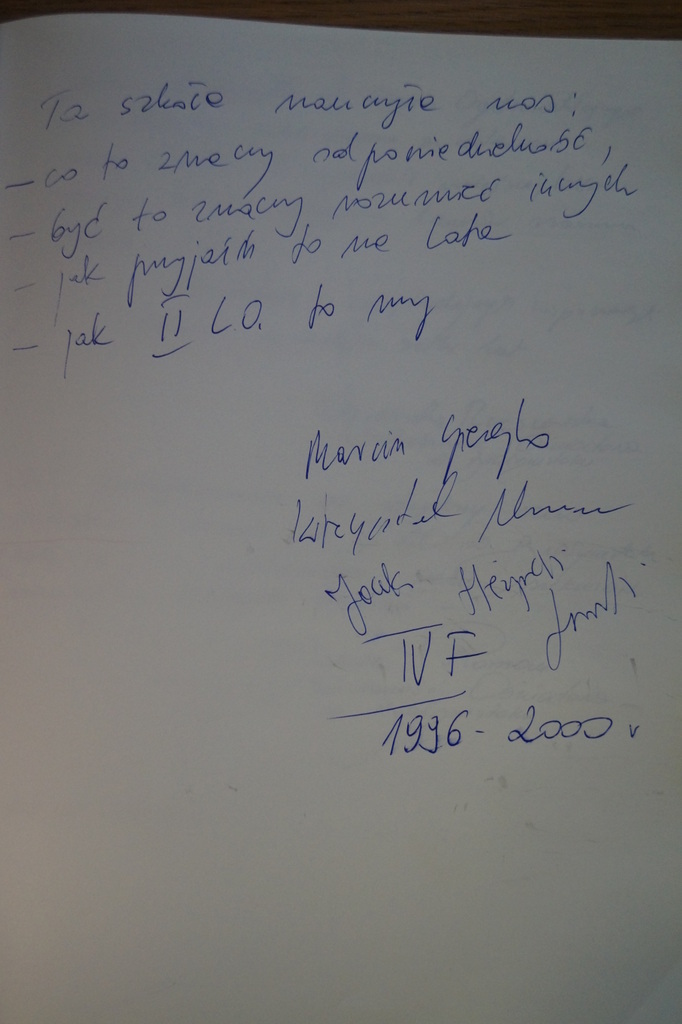 Ta szkoła nauczyła nas:
- co to znaczy odpowiedzialność,
- być to znaczy rozumieć innych
- jak przyjaźń to na lata
- jak II L.O. to my
Marcin
Krzysztof
Jacek
IV F
1996 - 2000 r